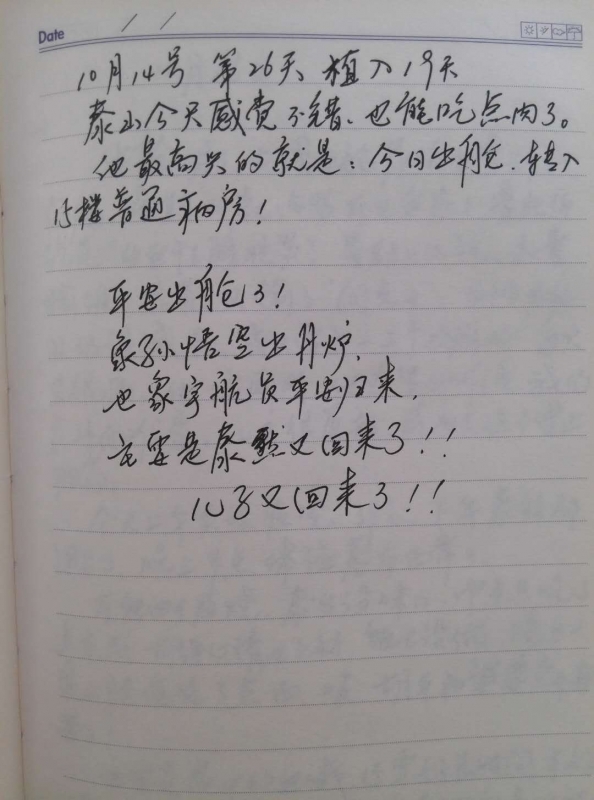 Date / /
10月14号 第26天 植入19天
泰山今天感觉不错、也能吃点肉了。
他最高兴的就是：今日出舱，转入
15楼普通病房！
平安出舱了！
象孙悟空出丹炉，
也象宇航员平安归来，
主要是泰然又回来了！！
儿子又回来了！！